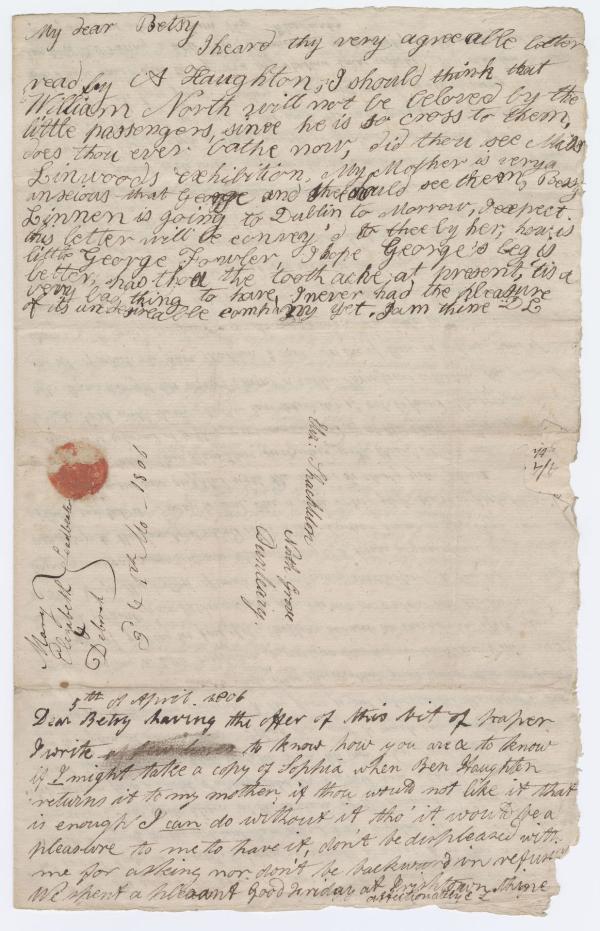 My dear Betsy
I heard thy very agreeable letter
read by A Haughton, I should think that
William North will not be beloved by the
little passengers, since he is so cross to them,
does thou ever bathe now, did thou see
Linwoods exhibition, My Mother is very
anxious that George and should see them, Bessy
Linnen is going to Dublin to Morrow, I expect
this letter will be convey'd to thee by her, how is
little George Fowler, I hope George's leg is
better, has thou the tooth ache at present, tis a
very bad thing to have, I never had the pleasure
of its undesireable company yet. I am thine DL
Eliz: Shackleton
North Grove
Dunleary.
Mary
Elizabeth Leadbeater
&
Deborah
5 & 6 4 Mo - 1806
5th of April 1806
Dear Betsy having the offer of this bit of paper
I write to know how you are & to know
if I might take a copy of Sophia when Ben Haughton
returns it to my mother if thou would not like it that
is enough I can do without it tho' it would be a
pleasure to me to have it, don't be displeased with
me for asking nor don't be backward in refusing
We spent a pleasant Good Friday at Irishtown thine
affectionately